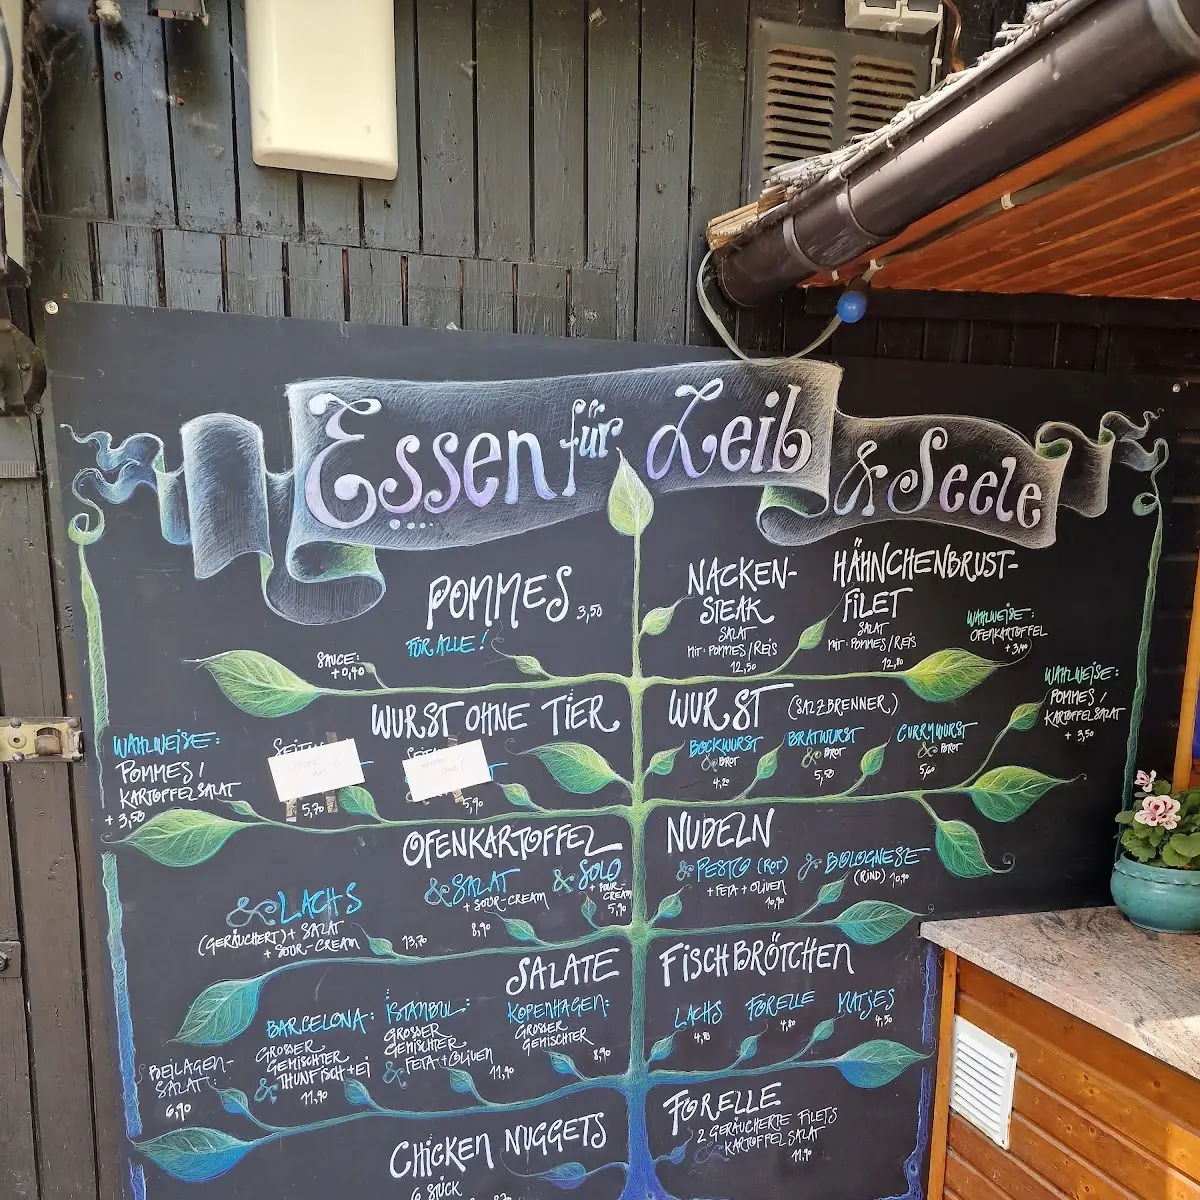 Essen für Leib & Seele
POMMES 3,50
FÜR ALLE!
SAUCE:
+0,40
NACKEN-
STEAK
SALAT
MIT POMMES/REIS
12,50
HÄHNCHENBRUST-
FILET
SALAT
MIT POMMES/REIS
12,80
WAHLWEISE:
OFENKARTOFFEL
WURST OHNE TIER
WAHLWEISE:
POMMES /
KARTOFFELSALAT
+ 3,50
5,70
5,90
WURST (SALZBRENNER)
BOCKWURST
& BROT
4,20
BRATWURST
& BROT
5,50
CURRYWURST
& BROT
5,60
WAHLWEISE:
POMMES /
KARTOFFELSALAT
+ 3,50
OFENKARTOFFEL
& LACHS
(GERÄUCHERT) + SALAT
+ SOUR-CREAM
13,70
& SALAT
+ SOUR-CREAM
8,90
& SOLO
+ SOUR-
CREAM
5,90
NUDELN
& PESTO (ROT)
+ FETA + OLIVEN
10,90
& BOLOGNESE
(RIND) 10,90
SALATE
BEILAGEN-
SALAT:
6,90
BARCELONA:
GROSSER
GEMISCHTER
& THUNFISCH + EI
11,90
ISTANBUL:
GROSSER
GEMISCHTER
& FETA + OLIVEN
11,90
KOPENHAGEN:
GROSSER
GEMISCHTER
8,90
FISCHBRÖTCHEN
LACHS
4,80
FORELLE
4,80
MATJES
4,50
CHICKEN NUGGETS
6 STÜCK
FORELLE
2 GERÄUCHERTE FILETS
KARTOFFELSALAT
11,90